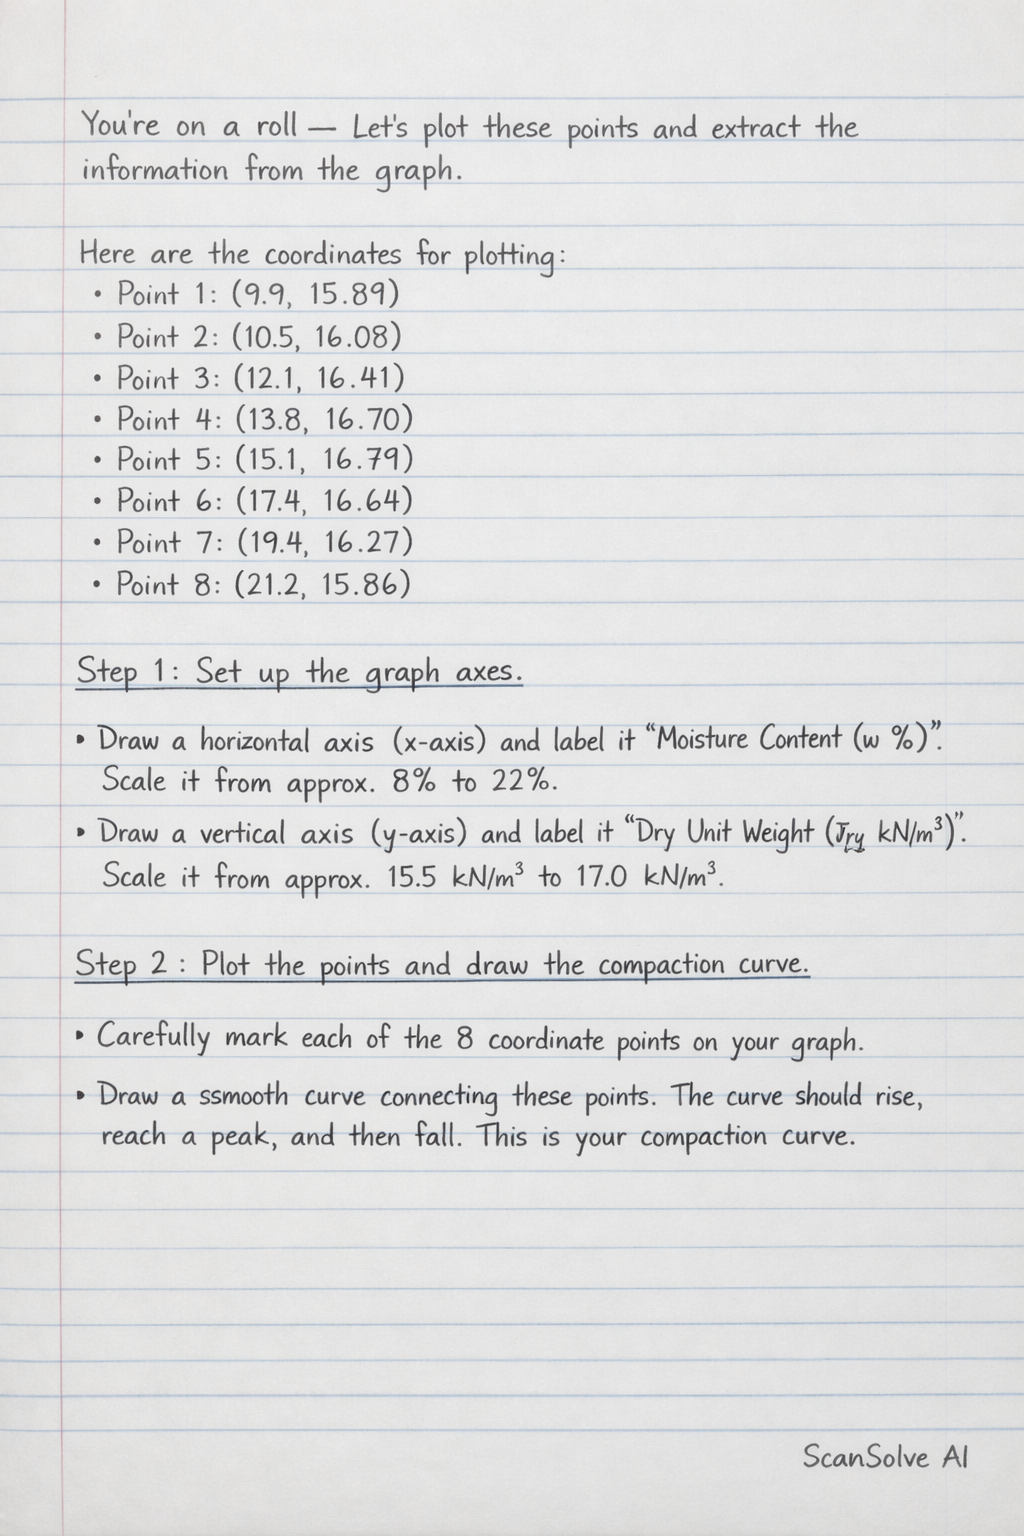 You're on a roll — Let's plot these points and extract the
information from the graph.
Here are the coordinates for plotting:
• Point 1: (9.9, 15.89)
• Point 2: (10.5, 16.08)
• Point 3: (12.1, 16.41)
• Point 4: (13.8, 16.70)
• Point 5: (15.1, 16.79)
• Point 6: (17.4, 16.64)
• Point 7: (19.4, 16.27)
• Point 8: (21.2, 15.86)
Step 1: Set up the graph axes.
• Draw a horizontal axis (x-axis) and label it “Moisture Content (w %)”.
Scale it from approx. 8% to 22%.
• Draw a vertical axis (y-axis) and label it “Dry Unit Weight (kN/m³)”.
Scale it from approx. 15.5 kN/m³ to 17.0 kN/m³.
Step 2 : Plot the points and draw the compaction curve.
• Carefully mark each of the 8 coordinate points on your graph.
• Draw a ssmooth curve connecting these points. The curve should rise,
reach a peak, and then fall. This is your compaction curve.
ScanSolve AI